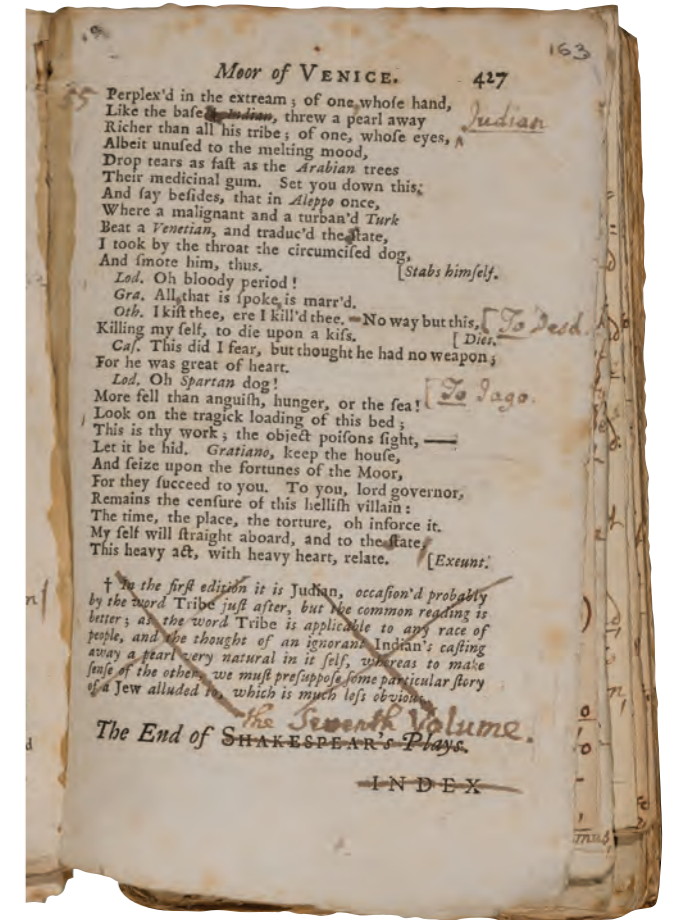 19
163
Moor of VENICE. 427
55
Perplex'd in the extream; of one, whoſe hand,
Like the baſe Indian, threw a pearl away Judian
Richer than all his tribe; of one, whoſe eyes, ^
Albeit unuſed to the melting mood,
Drop tears as faſt as the Arabian trees
Their medicinal gum. Set you down this;
And ſay beſides, that in Aleppo once,
Where a malignant and a turban'd Turk
Beat a Venetian, and traduc'd the ſtate,
I took by the throat the circumciſed dog,
And ſmote him, thus. [Stabs himſelf.
Lod. Oh bloody period!
Gra. All, that is ſpoke, is marr'd.
Oth. I kiſt thee, ere I kill'd thee. — No way but this, [To Desd.
Killing my ſelf, to die upon a kiſs. [Dies.
Caſ. This did I fear, but thought he had no weapon;
For he was great of heart.
Lod. Oh Spartan dog!
More fell than anguiſh, hunger, or the ſea! [To Jago.
Look on the tragick loading of this bed;
This is thy work; the object poiſons ſight, —
Let it be hid. Gratiano, keep the houſe,
And ſeize upon the fortunes of the Moor,
For they ſucceed to you. To you, lord governor,
Remains the cenſure of this helliſh villain:
The time, the place, the torture, oh inforce it.
My ſelf will ſtraight aboard, and to the ſtate,
This heavy act, with heavy heart, relate. [Exeunt.
† In the firſt edition it is Judian, occaſion'd probably
by the word Tribe juſt after, but the common reading is
better; as the word Tribe is applicable to any race of
people, and the thought of an ignorant Indian's caſting
away a pearl very natural in it ſelf, whereas to make
ſenſe of the other, we muſt preſuppoſe ſome particular ſtory
of a Jew alluded to, which is much leſs obvious.
the Seventh Volume.
The End of SHAKESPEAR's Plays.
INDEX